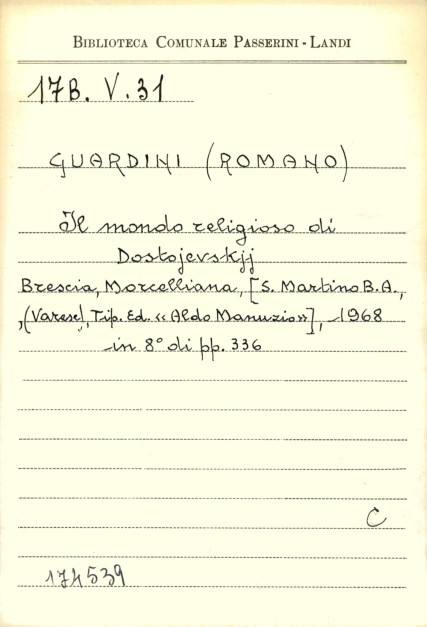 BIBLIOTECA COMUNALE PASSERINI - LANDI
17B. V. 31
GUARDINI (ROMANO)
Il mondo religioso di
Dostojevskjj
Brescia, Morcelliana, [S. Martino B.A.,
,(Varese), Tip. Ed. «Aldo Manuzio»], 1968
in 8° di pp. 336
C
174539